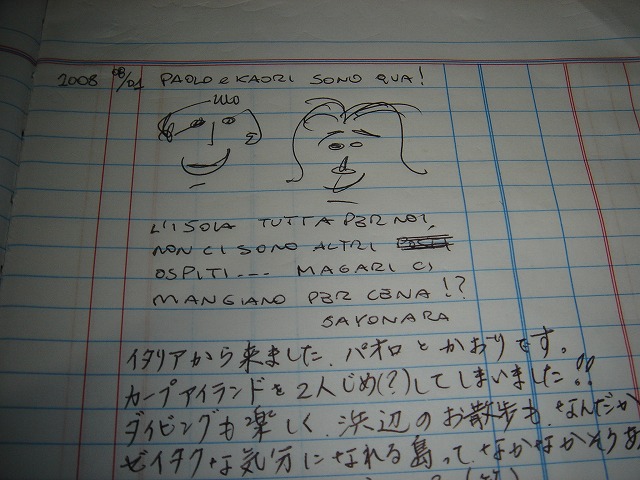 2008 08/01 PAOLO e KAORI SONO QUA!
L'ISOLA TUTTA PER NOI,
NON CI SONO ALTRI
OSPITI--- MAGARI CI
MANGIANO PER CENA!?
SAYONARA
イタリアから来ました。パオロとかおりです。
カープアイランドを2人じめ(?)してしまいました!!
ダイビングも楽しく、浜辺のお散歩も、なんだか
ゼイタクな気分になれる島って、なかなかそうあ